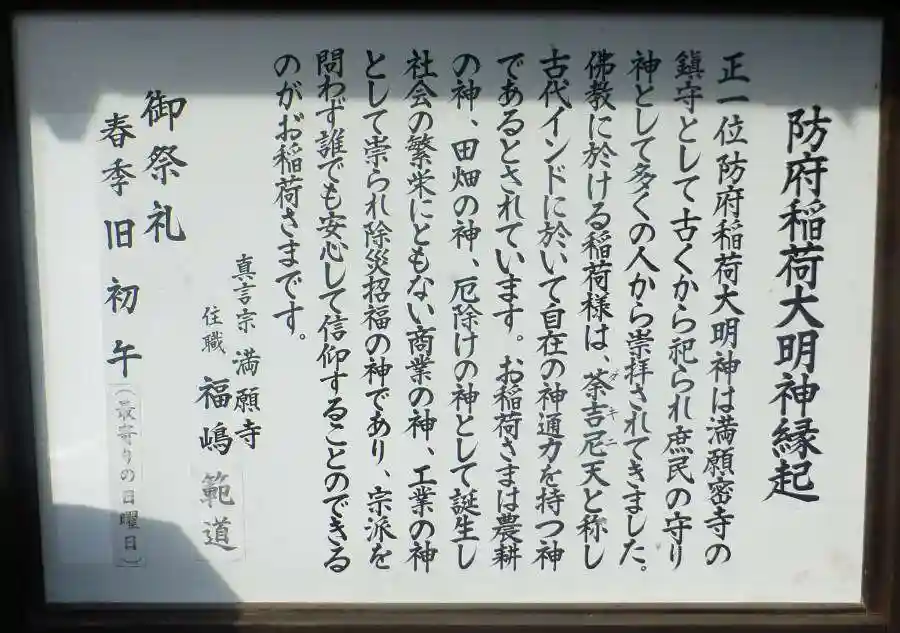 防府稲荷大明神縁起
正一位防府稲荷大明神は満願密寺の
鎮守として古くから祀られ庶民の守り
神として多くの人から崇拝されてきました。
佛教に於ける稲荷様は、荼吉尼天と称し
ダキニ
古代インドに於いて自在の神通力を持つ神
であるとされています。お稲荷さまは農耕
の神、田畑の神、厄除けの神として誕生し
社会の繁栄にともない商業の神、工業の神
として崇られ除災招福の神であり、宗派を
問わず誰でも安心して信仰することのできる
のがお稲荷さまです。
真言宗 満願寺
住職 福嶋 範道
御祭礼
春季旧初午(最寄りの日曜日)